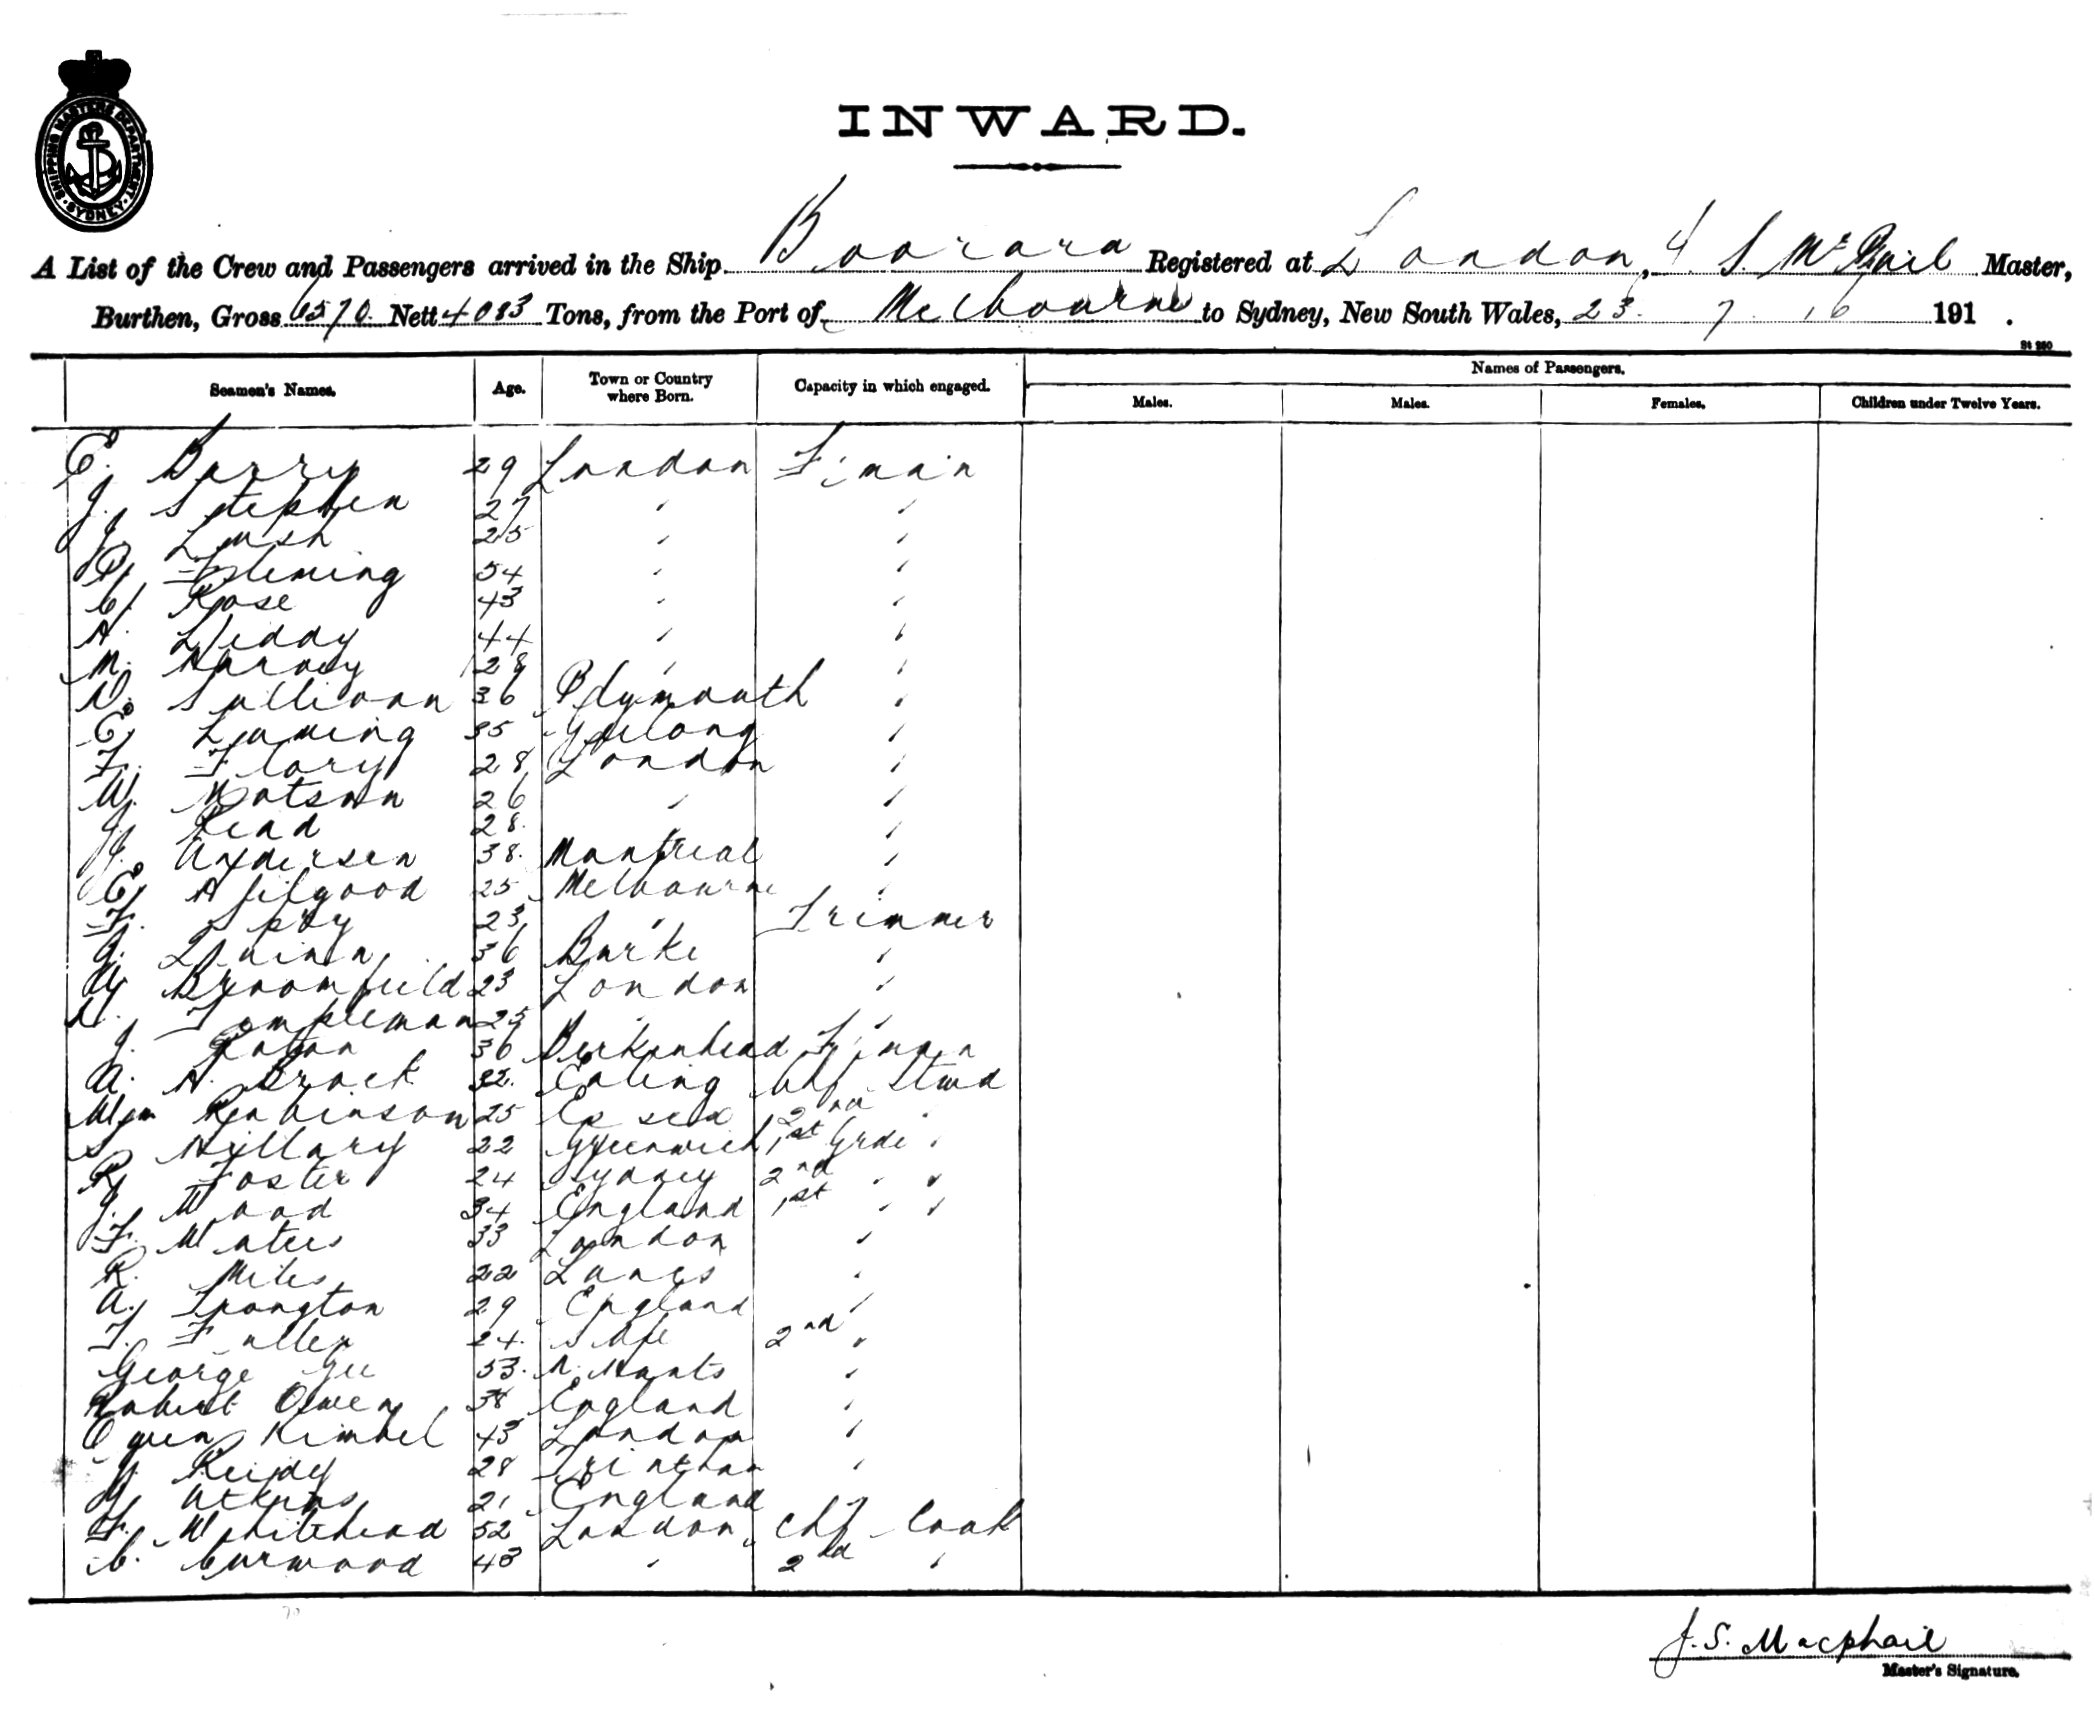 SHIPPING MASTER'S DEPARTMENT · SYDNEY ·
INWARD.
A List of the Crew and Passengers arrived in the Ship Boorara Registered at London, J S. McPhail Master,
Burthen, Gross 6570. Nett 4083 Tons, from the Port of Melbourne to Sydney, New South Wales, 23. 7 16 191 .
St 260
Seamen's Names. Age. Town or Country where Born. Capacity in which engaged. Names of Passengers.
Males. Males. Females. Children under Twelve Years.
E. Barry 29 London Fiman
J. Stephen 27 " "
J. Lush 25 " "
P. Fleming 54 " "
C. Rose 43 " "
A. Liddy 44 " "
M. Harvey 28 " "
D. Sullivan 36 Plymouth "
E. Leeming 35 Geelong "
F. Flory 28 London "
W. Watson 26 " "
J. Read 28. " "
J. Andersen 38. Montreal "
E. Hilgood 25 Melbourne "
F. Spry 23 " Trimmer
J. Quinn 36 Burke "
W. Broomfield 23 London "
Templeman 25 " "
J. Paton 36 Berkenhead Fiman
A. H. Brock 32. Ealing Chf Stwd
Wm Robinson 25 Essex 2nd "
S. Hillary 22 Greenwich 1st Grde "
R. Foster 24 Sydney 2nd " "
J. Wood 34 England 1st " "
F. Waters 33 London "
R. Miles 22 Lancs "
A. Spongton 29 England "
T. Fuller 24. 2nd "
George Gee 53. N. Hants "
Robert Owen 38 England "
Owen Kimbel 43 London "
J. Reidy 28 "
Atkins 21 England
F. Whitehead 52 London Chf Cook
C. Curwood 43 " 2nd "
J. S. Macphail
Master's Signature.